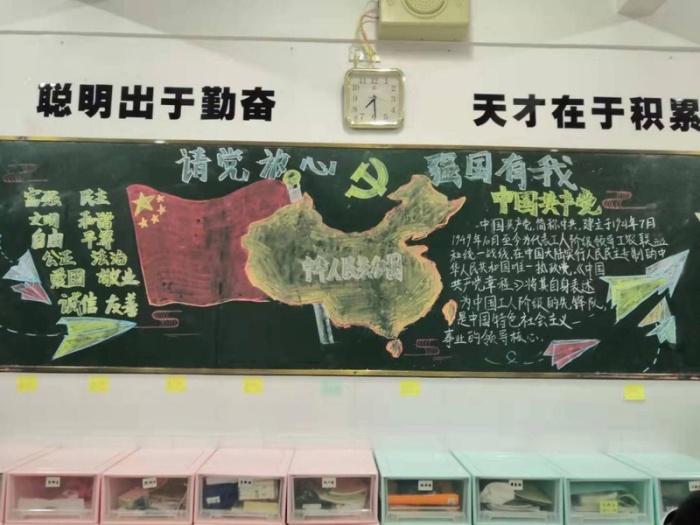 聪明出于勤奋
天才在于积累
请党放心
强国有我
富强 民主
文明 和谐
自由 平等
公正 法治
爱国 敬业
诚信 友善
中华人民共和国
中国共产党
中国共产党,简称中共,建立于1921年7月
1949年10月至今为代表工人阶级领导工农联
和统一战线,在中国大陆实行人民民主专制的中
华人民共和国唯一执政党,《中国
共产党章程》将其自身表述
为中国工人阶级的先锋队,
是中国特色社会主义
事业的领导核心.